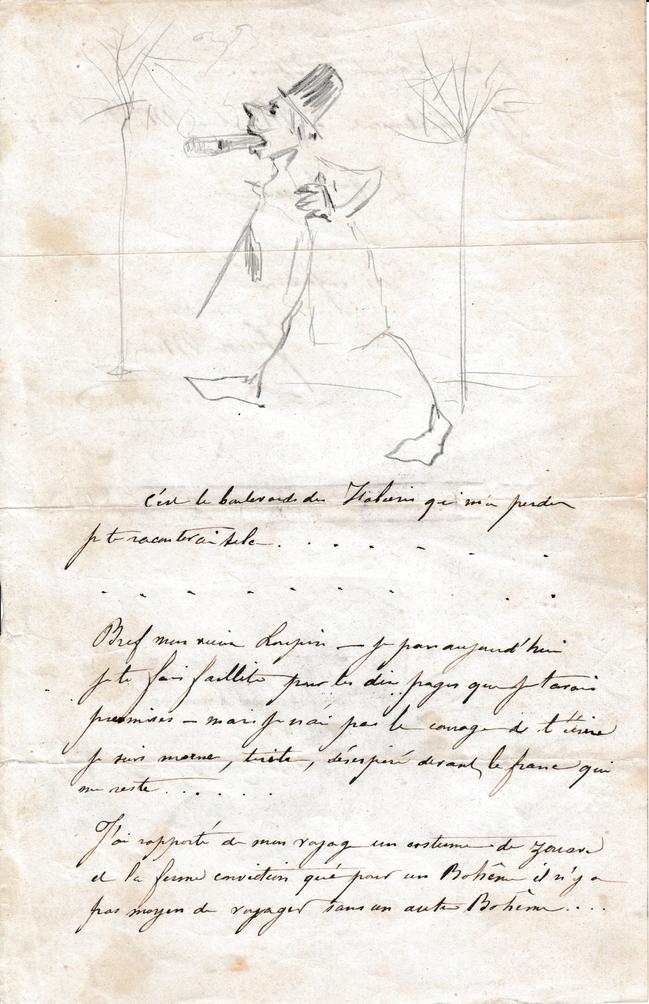 c'est le boulevard des Italiens qui m'a perdu
je te raconterai cela . . . . . . .
. . . . . . . . . .
Bref mon vieux — je pars aujourd'hui
je te fais faillite pour les dix pages que je t'avais
promises — mais je n'ai pas le courage de t'écrire
je suis morne, triste, désespéré devant le franc qui
me reste . . . . .
J'ai rapporté de mon voyage un costume de zouave
et la ferme conviction que pour un Bohême il n'y a
pas moyen de voyager sans un autre Bohême . . . .